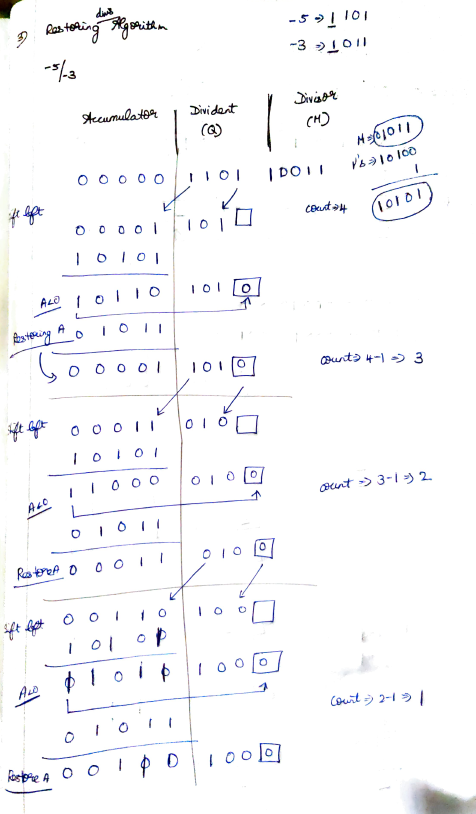 3) Restoring divs Algorithm
-5 ⇒ 1 101
-3 ⇒ 1 011
-5/-3
Accumulator Dividend (Q) Divisor (M)
0 0 0 0 0 1 1 0 1 1 0 0 1 1
M ⇒ 01011
1's ⇒ 10100
1
10101
count ⇒ 4
ift left 0 0 0 0 1 1 0 1
1 0 1 0 1
A<0 1 0 1 1 0 1 0 1 0
Restoring A 0 1 0 1 1
0 0 0 0 1 1 0 1 0 count ⇒ 4-1 ⇒ 3
ift left 0 0 0 1 1 0 1 0
1 0 1 0 1
A<0 1 1 0 0 0 0 1 0 0 count ⇒ 3-1 ⇒ 2
0 1 0 1 1
Restore A 0 0 0 1 1 0 1 0 0
ift left 0 0 1 1 0 1 0 0
1 0 1 0
A<0 1 0 1 1 0 0 0 count ⇒ 2-1 ⇒ 1
0 1 0 1 1
Restore A 0 0 1 0 1 0 0 0